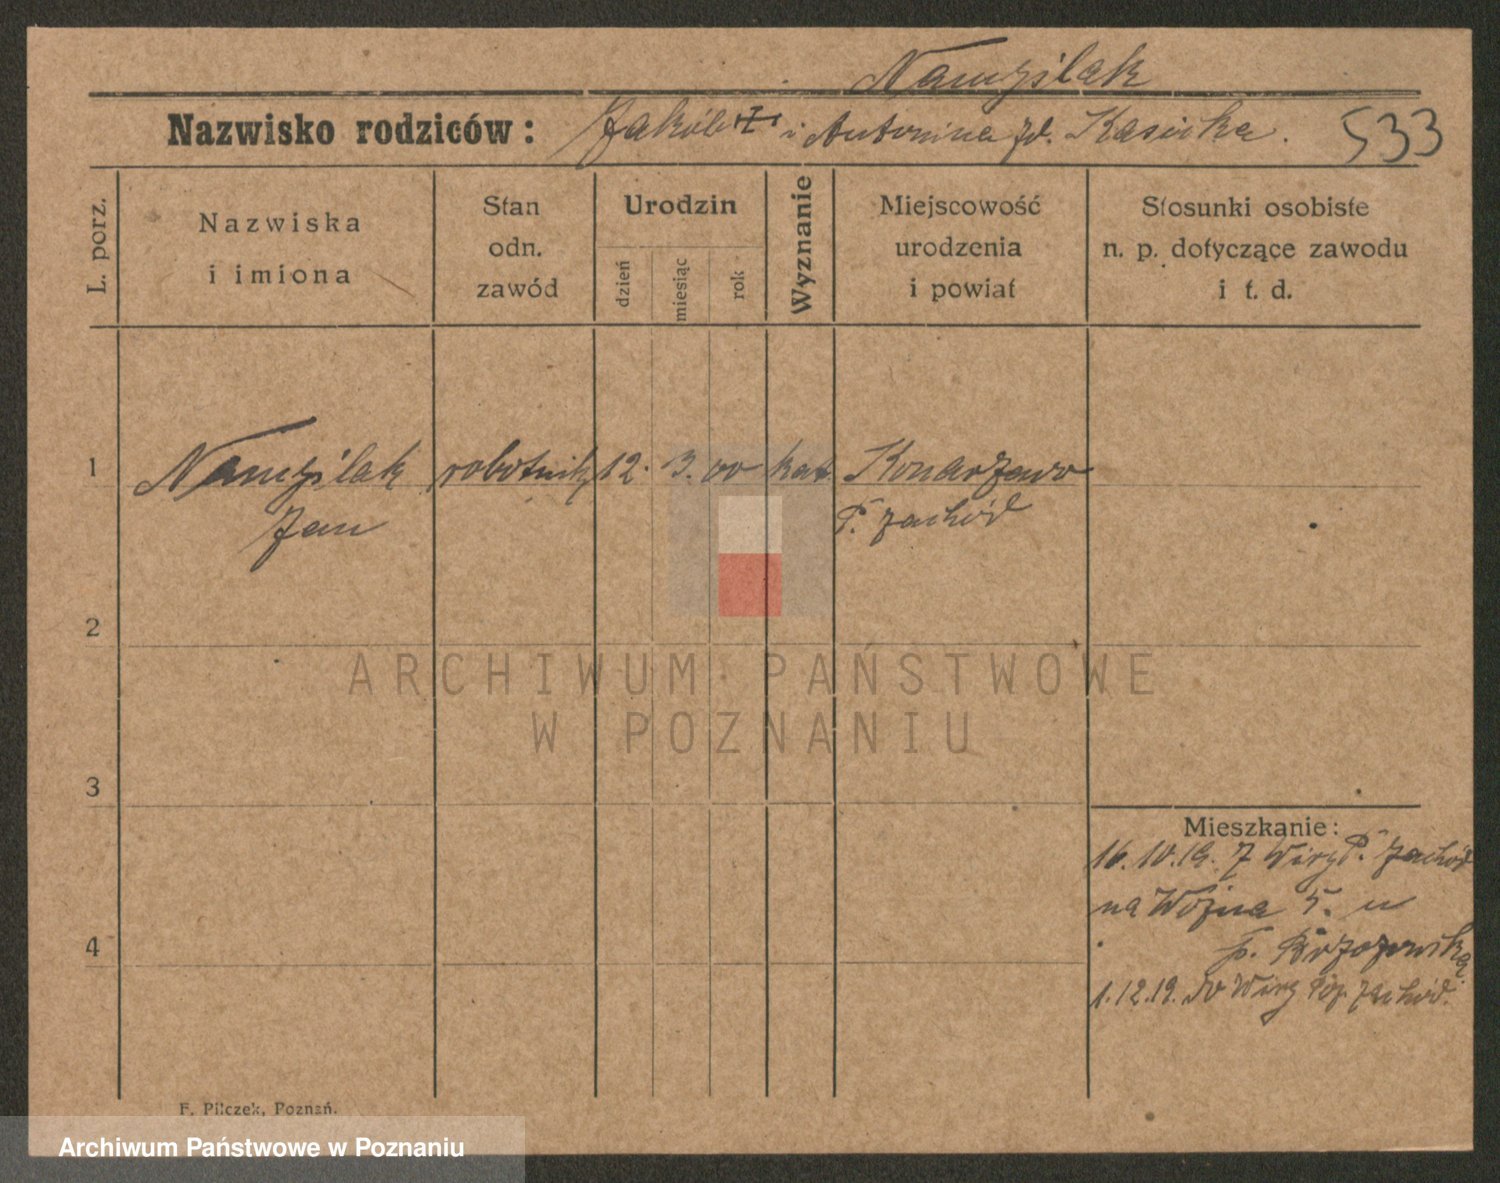 Namyślak
Nazwisko rodziców: Jakób i Antonina zd. Kasicka. 533
L. porz.
Nazwiska
i imiona
Stan
odn.
zawód
Urodzin
dzień
miesiąc
rok
Wyznanie
Miejscowość
urodzenia
i powiat
Stosunki osobiste
n. p. dotyczące zawodu
i t. d.
1 robotnik 12. 3. 00 kat. Konarzewo
Jan P. zachód
2
3
4
Mieszkanie:
16.10.19. z Wiry P. zachód
na 5. u
p. Brzozowską
1.12.19. do Wiry Poz. zachód.
F. Pilczek, Poznań.
ARCHIWUM PAŃSTWOWE
W POZNANIU
Archiwum Państwowe w Poznaniu